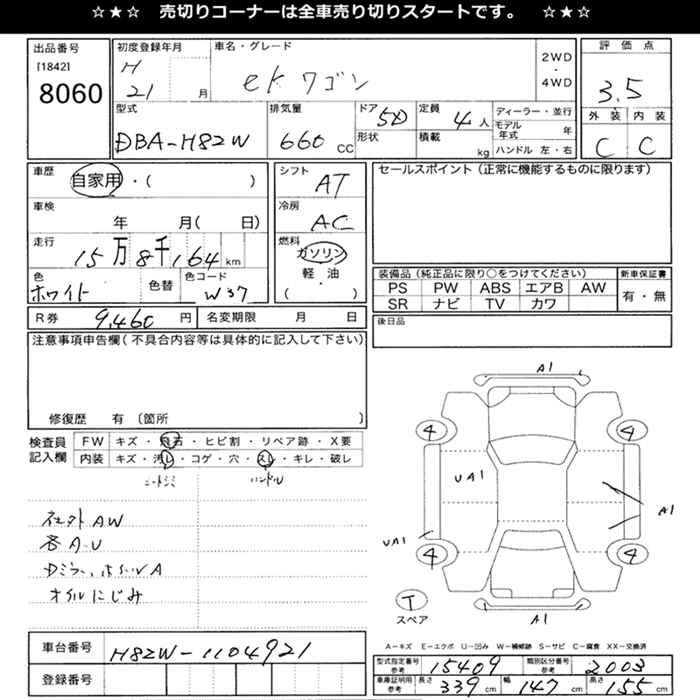 ☆★☆ 売切りコーナーは全車売り切りスタートです。 ☆★☆
出品番号
[1842]
8060
初度登録年月
H
21 月
車名・グレード
ekワゴン
2WD
・
4WD
評価点
3.5
外装 内装
C C
型式
DBA-H82W
排気量
660 CC
ドア
5D
形状
定員
4人
積載
kg
ディーラー・並行
モデル年式 年
ハンドル 左・右
車歴
自家用・( )
車検
年 月( 日)
走行
15万8千164 km
色
ホワイト
色替
色コード
W37
シフト
AT
冷房
AC
燃料
ガソリン
軽・油
( )
セールスポイント(正常に機能するものに限ります)
装備品(純正品に限り○をつけてください)
PS PW ABS エアB AW
SR ナビ TV カワ
新車保証書
有・無
R券 9,460 円
名変期限 月 日
後日品
注意事項申告欄(不具合内容等は具体的に記入して下さい)
修復歴 有 〔箇所 〕
検査員
記入欄
FW キズ・飛石・ヒビ割・リペア跡・X要
内装 キズ・汚レ・コゲ・穴・スレ・キレ・破レ
シートシミ ハンドル
社外AW
各A-U
オイルにじみ
A1
4 4
UA1
A1
UA1
4 4
T
スペア
A1
A-キズ E-エクボ U-凹み W-補修跡 S-サビ C-腐食 XX-交換済
車台番号 H82W-1104921
登録番号
型式指定番号
参考
15409
類別区分番号
参考
2003
車庫証明用
参考
長さ 339 cm
幅 147 cm
高さ 155 cm